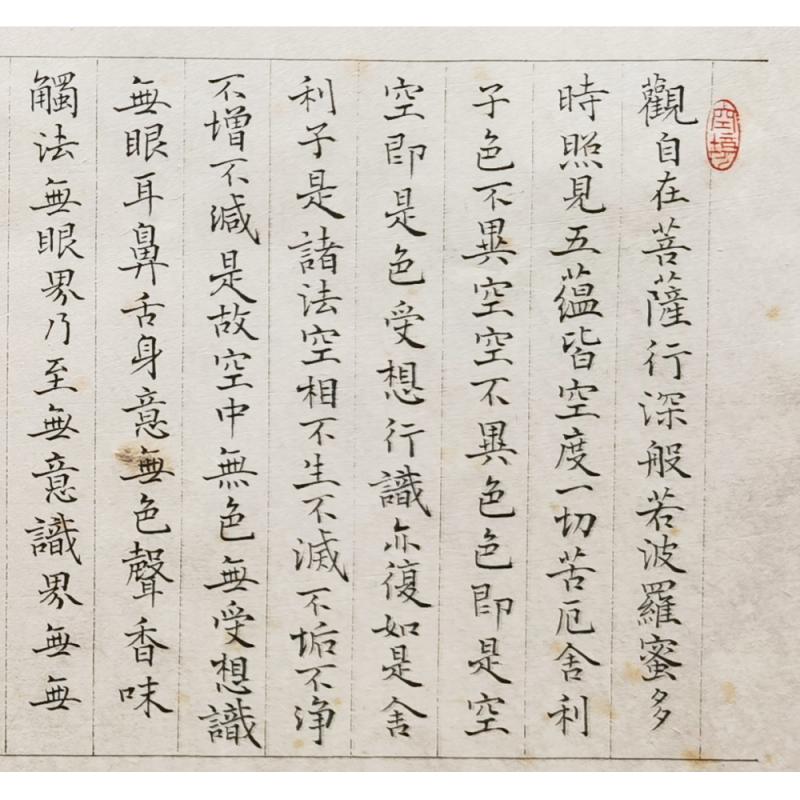 觀自在菩薩行深般若波羅蜜多
時照見五蘊皆空度一切苦厄舍利
子色不異空空不異色色即是空
空即是色受想行識亦復如是舍
利子是諸法空相不生不滅不垢不淨
不增不減是故空中無色無受想識
無眼耳鼻舌身意無色聲香味
觸法無眼界乃至無意識界無無